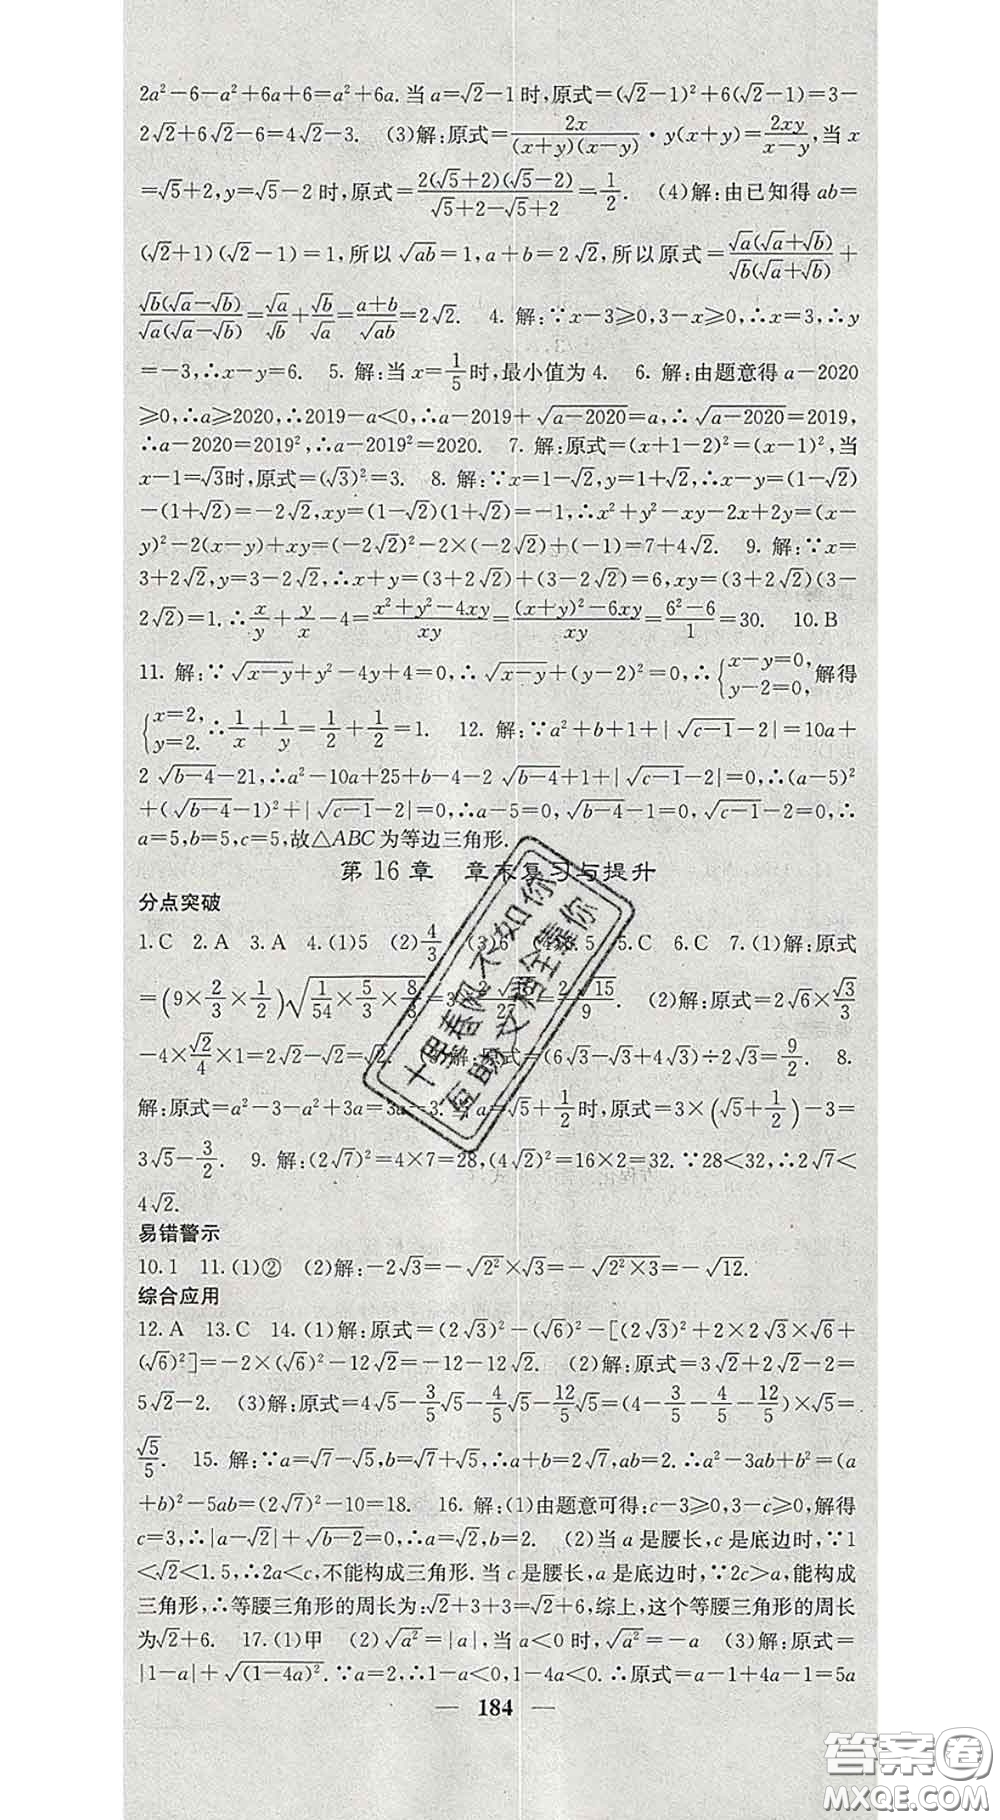 2a²-6-a²+6a+6=a²+6a.当a=√2-1时,原式=(√2-1)²+6(√2-1)=3-
2√2+6√2-6=4√2-3. (3)解:原式=2x/((x+y)(x-y))·y(x+y)=2xy/(x-y),当x
=√5+2,y=√5-2时,原式=2(√5+2)(√5-2)/(√5+2-√5+2)=1/2. (4)解:由已知得ab=
(√2+1)(√2-1)=1,所以√(ab)=1,a+b=2√2,所以原式=√a(√a+√b)/(√b(√a+√b))+
√b(√a-√b)/(√a(√a-√b))=√a/√b+√b/√a=(a+b)/√(ab)=2√2. 4.解:∵x-3≥0,3-x≥0,∴x=3,∴y
=-3,∴x-y=6. 5.解:当x=1/5时,最小值为4. 6.解:由题意得a-2020
≥0,∴a≥2020,∴2019-a<0,∴a-2019+√(a-2020)=a,∴√(a-2020)=2019,
∴a-2020=2019²,∴a-2019²=2020. 7.解:原式=(x+1-2)²=(x-1)²,当
x-1=√3时,原式=(√3)²=3. 8.解:∵x=1-√2,y=1+√2,∴x-y=(1-√2)
-(1+√2)=-2√2,xy=(1-√2)(1+√2)=-1,∴x²+y²-xy-2x+2y=(x-
y)²-2(x-y)+xy=(-2√2)²-2×(-2√2)+(-1)=7+4√2. 9.解:∵x=
3+2√2,y=3-2√2,∴x+y=(3+2√2)+(3-2√2)=6,xy=(3+2√2)(3-
2√2)=1.∴x/y+y/x-4=(x²+y²-4xy)/xy=((x+y)²-6xy)/xy=(6²-6)/1=30. 10.B
11.解:∵√(x-y)+y²-4y+4=0,∴√(x-y)+(y-2)²=0,∴{x-y=0, y-2=0,解得
{x=2, y=2.∴1/x+1/y=1/2+1/2=1. 12.解:∵a²+b+1+|√(c-1)-2|=10a+
2√(b-4)-21,∴a²-10a+25+b-4-2√(b-4)+1+|√(c-1)-2|=0,∴(a-5)²
+(√(b-4)-1)²+|√(c-1)-2|=0,∴a-5=0,√(b-4)-1=0,√(c-1)-2=0,∴
a=5,b=5,c=5,故△ABC为等边三角形.
第16章 章末复习与提升
分点突破
1.C 2.A 3.A 4.(1)5 (2)4/3 (3)6 5 5.C 6.C 7.(1)解:原式
=(9×2/3×1/2)√(1/54×5/3×8/3)=3 2√15/27=2√15/9. (2)解:原式=2√6×√3/3
-4×√2/4×1=2√2-√2=√2. (3)解:原式=(6√3-√3+4√3)÷2√3=9/2. 8.
解:原式=a²-3-a²+3a=3a-3.当a=√5+1/2时,原式=3×(√5+1/2)-3=
3√5-3/2. 9.解:(2√7)²=4×7=28,(4√2)²=16×2=32.∵28<32,∴2√7<
4√2.
易错警示
10.1 11.(1)② (2)解:-2√3=-√2²×√3=-√(2²×3)=-√12.
综合应用
12.A 13.C 14.(1)解:原式=(2√3)²-(√6)²-[(2√3)²+2×2√3×√6+
(√6)²]=-2×(√6)²-12√2=-12-12√2. (2)解:原式=3√2+2√2-2=
5√2-2. (3)解:原式=4√5-3/5√5-4/5√5-12/5√5=(4-3/5-4/5-12/5)×√5=
√5/5. 15.解:∵a=√7-√5,b=√7+√5,∴a+b=2√7,ab=2.∴a²-3ab+b²=(a
+b)²-5ab=(2√7)²-10=18. 16.解:(1)由题意可得:c-3≥0,3-c≥0,解得
c=3,∴|a-√2|+√(b-2)=0,∴a=√2,b=2. (2)当a是腰长,c是底边时,∵1
<√2<1.5,∴2a<c,不能构成三角形.当c是腰长,a是底边时,∵2c>a,能构成
三角形,∴等腰三角形的周长为:√2+3+3=√2+6,综上,这个等腰三角形的周长
为√2+6. 17.(1)甲 (2)√a²=|a|,当a<0时,√a²=-a (3)解:原式=
|1-a|+√(1-4a)².∵a=2,∴1-a<0,1-4a<0.∴原式=a-1+4a-1=5a
— 184 —
十里春风不如你
互助文档全靠你
答案圈
MXQE.COM